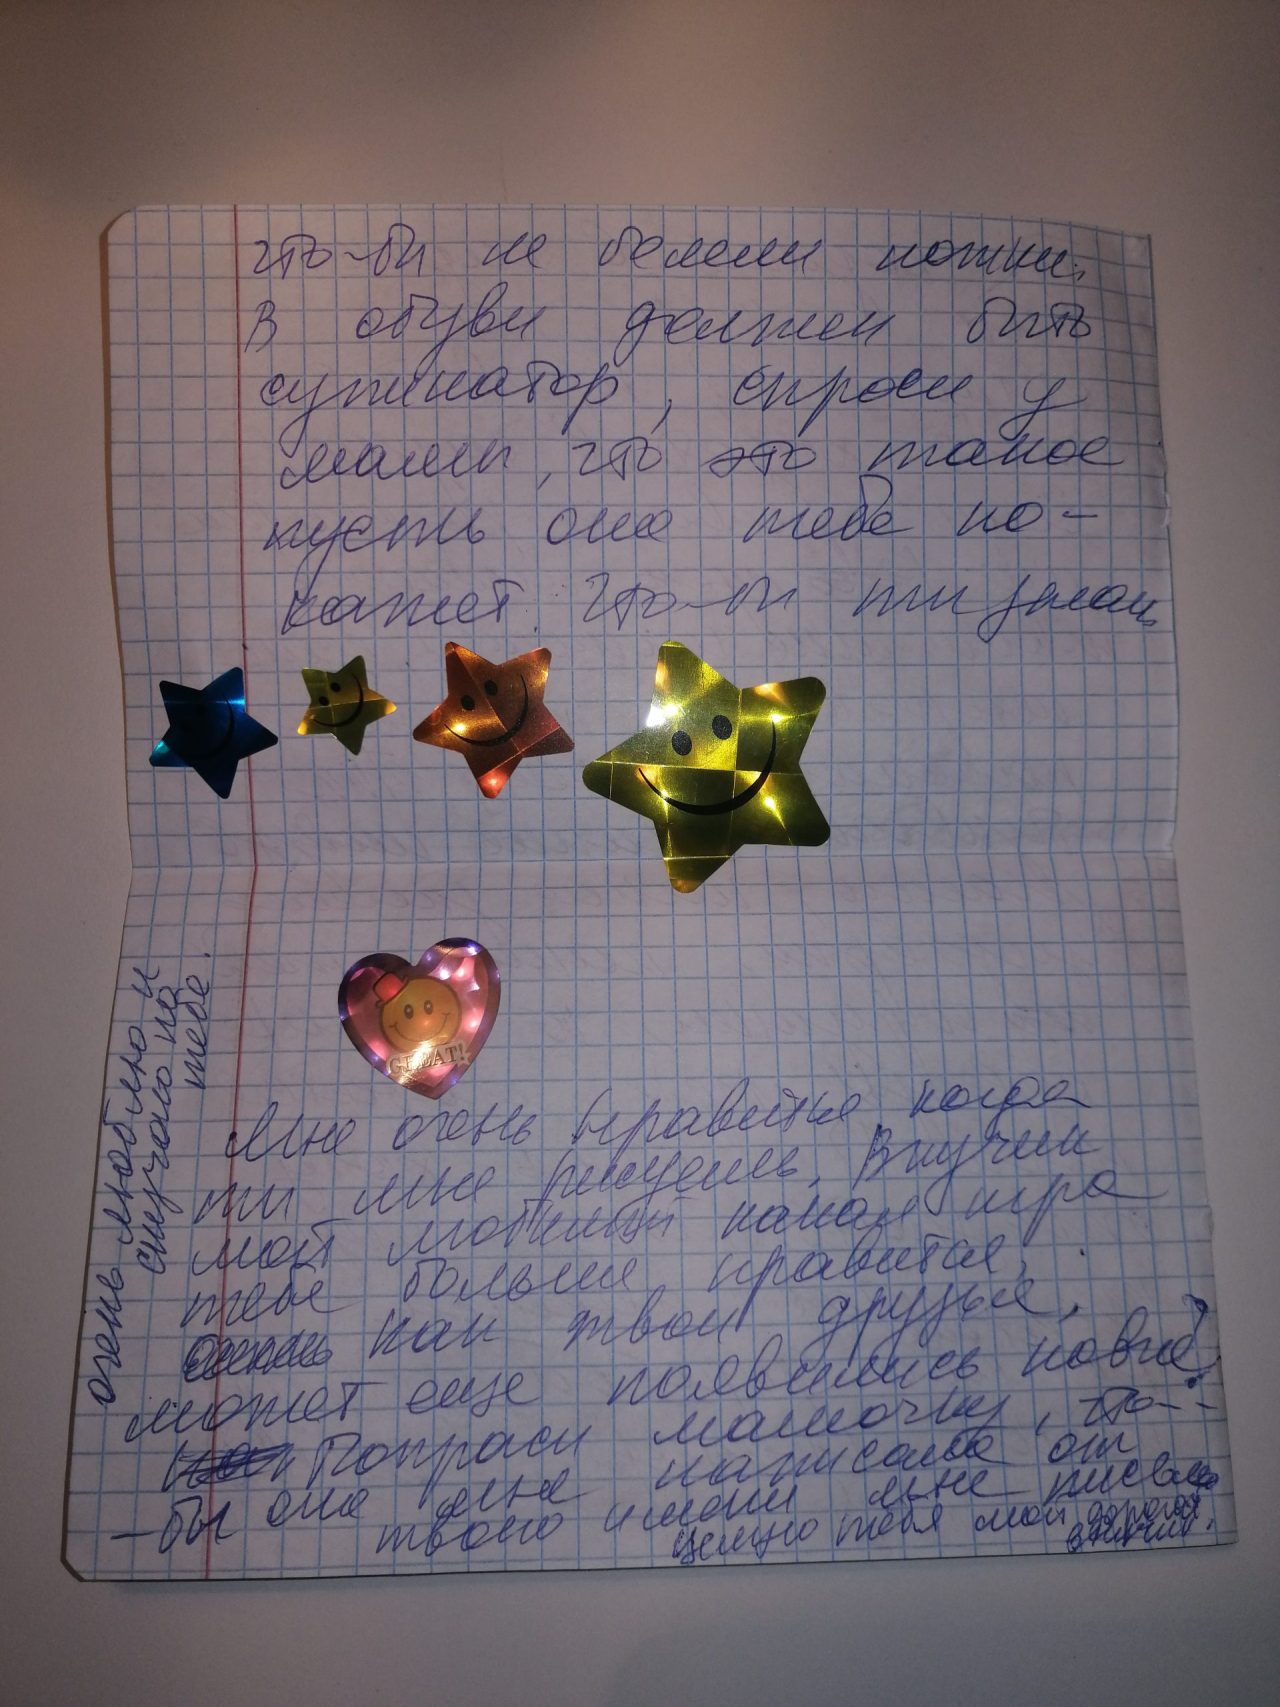 что-бы не болели ножки.
В обуви должен быть
супинатор, спроси у
мамы, что это такое
пусть она тебе по-
кажет. Что-бы ты знал
GREAT!
Мне очень нравится когда
ты мне рисуешь. Внучек
мой любимый какая игра
тебе больше нравится,
как твои друзья,
может еще появились новые?
Попроси мамочку, что-
-бы она мне написала от
твоего имени мне письмо
Целую тебя мой дорогой
внучек.
очень люблю и
скучаю по
тебе.